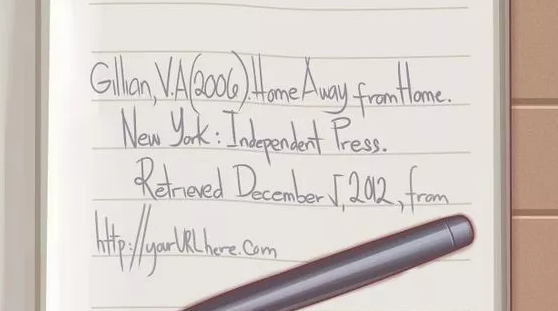 Gillian, V.A (2006). Home Away from Home.
New York: Independent Press.
Retrieved December 5, 2012, from
http://yourURLhere.com